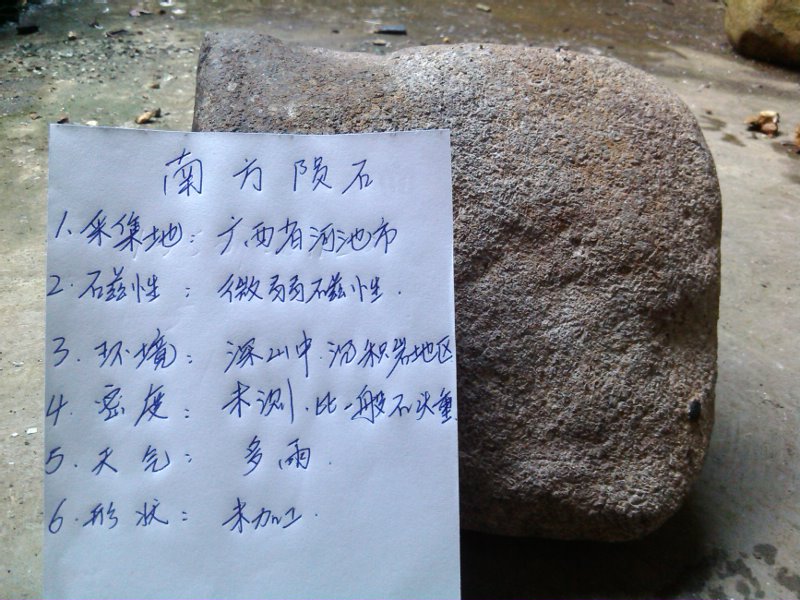 南方陨石
1. 采集地：广西省河池市
2. 磁性：微弱磁性.
3. 环境：深山中.沉积岩地区
4. 密度：未测.比一般石头重
5. 天气：多雨.
6. 形状：未加工.